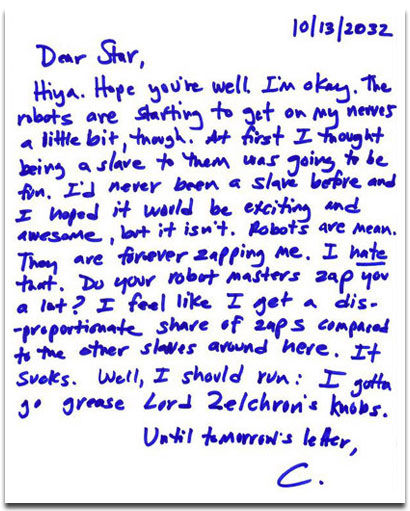 10/13/2032
Dear Star,
Hiya. Hope you're well. I'm okay. The
robots are starting to get on my nerves
a little bit, though. At first I thought
being a slave to them was going to be
fun. I'd never been a slave before and
I hoped it would be exciting and
awesome, but it isn't. Robots are mean.
They are forever zapping me. I hate
that. Do your robot masters zap you
a lot? I feel like I get a dis-
-proportionate share of zaps compared
to the other slaves around here. It
sucks. Well, I should run: I gotta
go grease Lord Zelchron's knobs.
Until tomorrow's letter,
C.